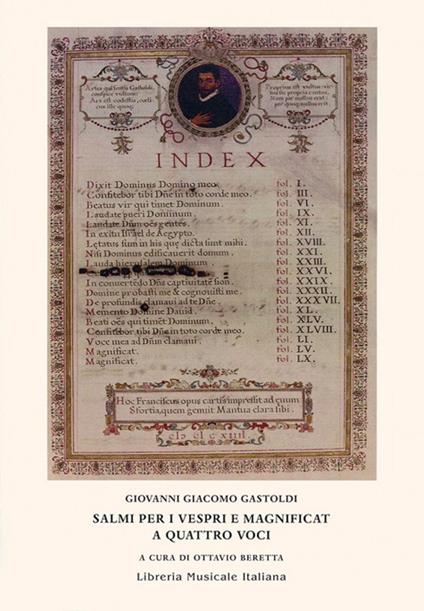 Artes qui sentis Gastoldi,
conspice vultum:
Ars est caelestis,
ille quoq;
Proprius est vultus
INDEX
Dixit Dominus Domino meo. fol. I.
Confitebor tibi Dñe in toto corde meo. fol. III.
Beatus vir qui timet Dominum. fol. VI.
Laudate pueri Dominum. fol. IX.
Laudate Dñm oēs gentes. fol. XI.
In exitu Israel de Aegypto. fol. XII.
Lętatus sum in his quę dicta sunt mihi. fol. XVIII.
Nisi Dominus edificauerit domum. fol. XXI.
Lauda hierusalem Dominum. fol. XXIII.
fol. XXVI.
In conuertēdo Dñs captiuitatē sion. fol. XXIX.
Domine probasti me & cognouisti me. fol. XXXII.
De profundis clamaui ad te Dñe. fol. XXXVII.
Memento Domine Dauid. fol. XL.
Beati oēs qui timēt Dominum. fol. XLV.
Confitebor tibi Dñs in toto corde meo. fol. XLVIII.
Voce mea ad Dñum clamaui. fol. LI.
Magnificat. fol. LV.
Magnificat. fol. LX.
Hoc Franciscus opus cartis impressit ad ęuum
Sfortia, quem genuit Mantua clara sibi.
GIOVANNI GIACOMO GASTOLDI
SALMI PER I VESPRI E MAGNIFICAT
A QUATTRO VOCI
A CURA DI OTTAVIO BERETTA
Libreria Musicale Italiana